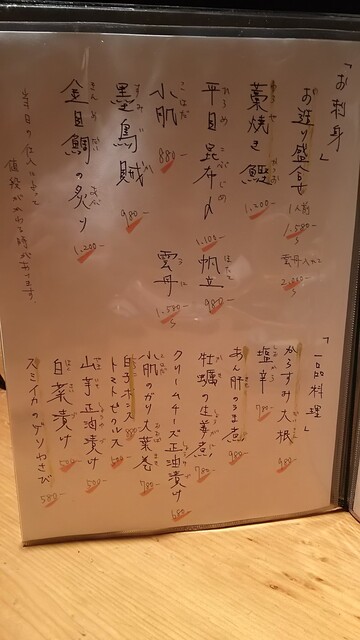 「お刺身」
お造り盛合せ 1人前 1.580〜 雲丹入れて 2.800〜
藁焼き鰹 1.200-
平目昆布〆 1.100-
小肌 880-
墨烏賊 980-
金目鯛の炙り 1.200-
帆立 980-
雲丹 1.580〜
当日の仕入に寄って
値段がかわる時があります
「一品料理」
からすみ大根 980-
塩辛 780-
あん肝のうま煮 980-
牡蠣の生姜煮 780-
クリームチーズ正油漬け 680-
小肌のガリ大葉巻 780-
白子ポン酢 880-
トマトピクルス 500-
山芋正油漬け 500-
白菜漬け 500-
スミイカのゲソわさび 580-